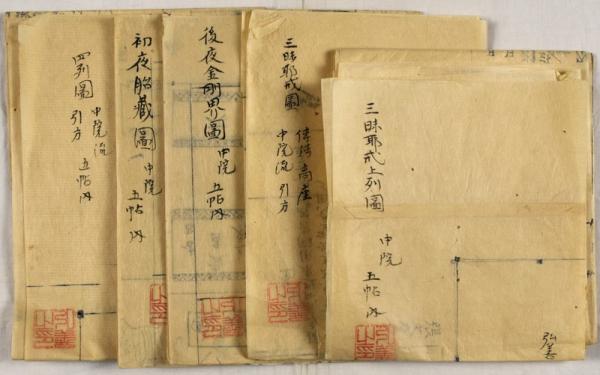 三昧耶戒上列圖
中院
五帖内
弘善
三昧耶戒圖
伝授高座
中院流 引方
後夜金剛界圖
中院
五帖内
初夜胎蔵圖
中院
五帖内
四列圖
中院流
引方
五帖内